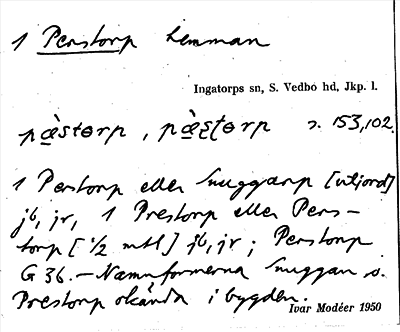 1 Perstorp hemman
Ingatorps sn, S. Vedbo hd, Jkp. l.
pæ̀stɵrp, pæ̀ʂʈɵrp s. 153,102.
1 Perstorp eller Snuggarp [utjord]
jb, jr, 1 Prestorp eller Pers-
torp [½ mtl] jb, jr; Perstorp
G 36. – Namnformerna Snuggan o.
Prestorp okända i bygden.
Ivar Modéer 1950